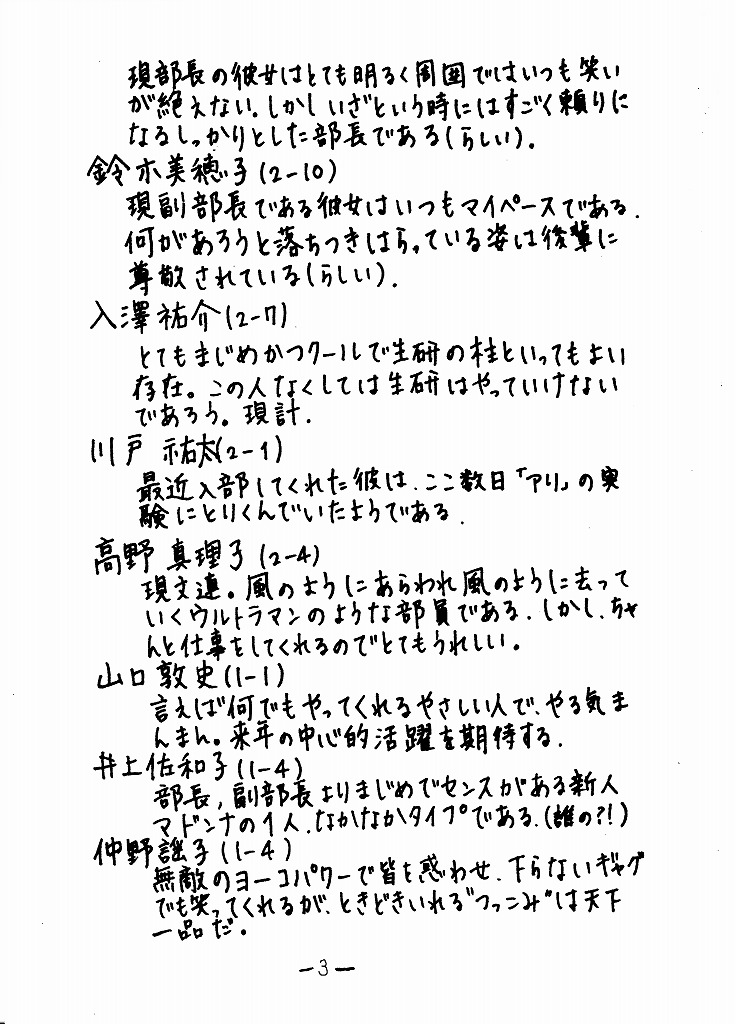 現部長の彼女はとても明るく周囲ではいつも笑い
が絶えない。しかしいざという時にはすごく頼りに
なるしっかりとした部長である(らしい).
鈴木美穂子(2-10)
現副部長である彼女はいつもマイペースである.
何があろうと落ちつきはらっている姿は後輩に
尊敬されている(らしい).
入澤祐介(2-7)
とてもまじめかつクールで生研の柱といってもよい
存在。この人なくしては生研はやっていけない
であろう。現計.
川戸 祐太(2-1)
最近入部してくれた彼は、ここ数日「アリ」の実
験にとりくんでいたようである.
高野 真理子(2-4)
現文連。風のようにあらわれ風のように去って
いくウルトラマンのような部員である.しかし、ちゃ
んと仕事をしてくれるのでとてもうれしい。
山口敦史(1-1)
言えば何でもやってくれるやさしい人で、やる気ま
んまん。来年の中心的活躍を期待する.
井上佐和子(1-4)
部長,副部長よりまじめでセンスがある新人
マドンナの1人.なかなかタイプである.(誰の?!)
仲野謡子(1-4)
無敵のヨーコパワーで皆を惑わせ、下らないギャグ
でも笑ってくれるが、ときどきいれる"つっこみ"は天下
一品だ。
-3-